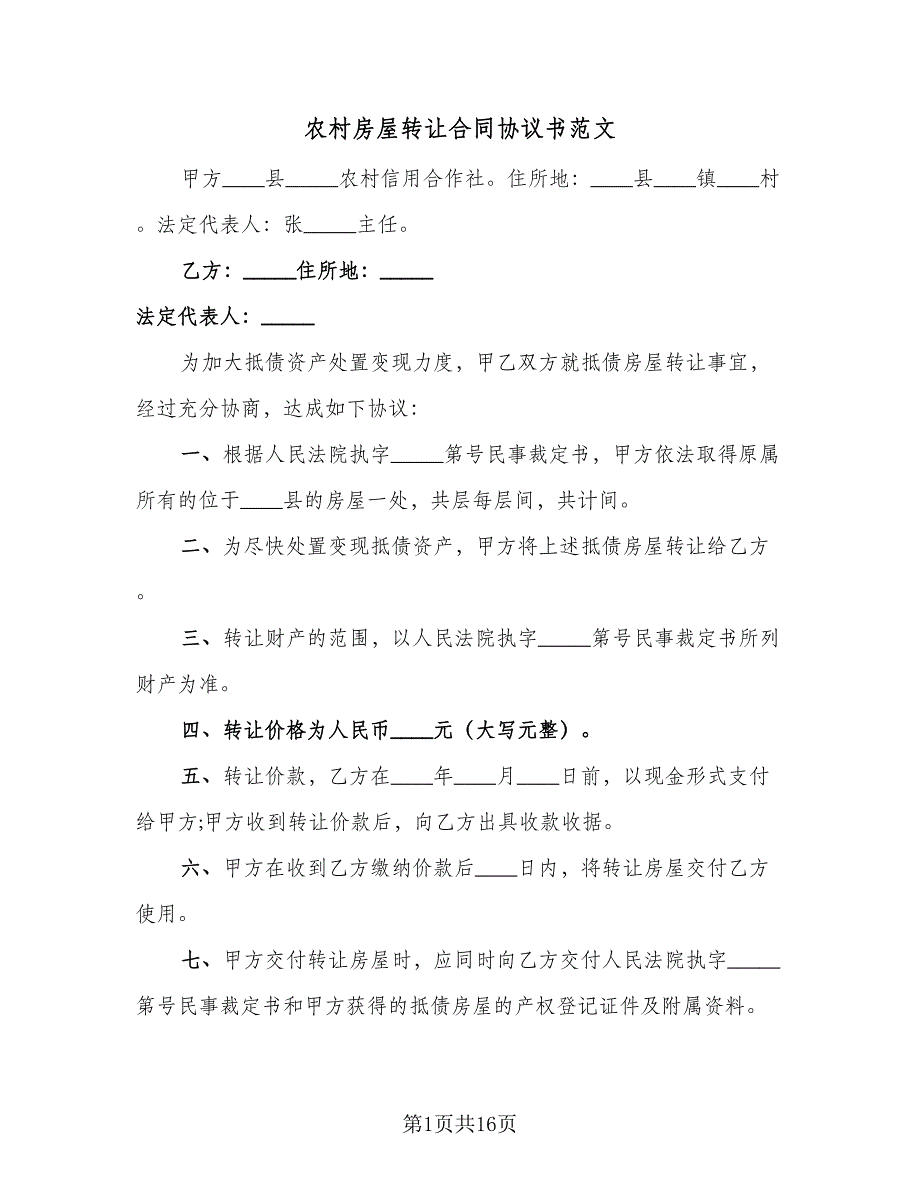 农村房屋转让合同协议书范文
甲方____县_____农村信用合作社。住所地：____县____镇____村
。法定代表人：张_____主任。
乙方：_____住所地：_____
法定代表人：_____
为加大抵债资产处置变现力度，甲乙双方就抵债房屋转让事宜，
经过充分协商，达成如下协议：
一、根据人民法院执字_____第号民事裁定书，甲方依法取得原属
所有的位于____县的房屋一处，共层每层间，共计间。
二、为尽快处置变现抵债资产，甲方将上述抵债房屋转让给乙方
。
三、转让财产的范围，以人民法院执字_____第号民事裁定书所列
财产为准。
四、转让价格为人民币____元（大写元整）。
五、转让价款，乙方在____年____月____日前，以现金形式支付
给甲方;甲方收到转让价款后，向乙方出具收款收据。
六、甲方在收到乙方缴纳价款后____日内，将转让房屋交付乙方
使用。
七、甲方交付转让房屋时，应同时向乙方交付人民法院执字_____
第号民事裁定书和甲方获得的抵债房屋的产权登记证件及附属资料。
第1页共16页